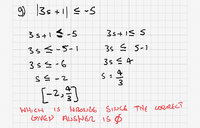 g) |3s+1| ≤ -5
3s+1 ≤ -5 3s+1 ≤ 5
3s ≤ -5-1 3s ≤ 5-1
3s ≤ -6 3s ≤ 4
s ≤ -2 s = 4/3
[-2, 4/3]
WHICH IS WRONG SINCE THE CORRECT
GIVEN ANSWER IS Ø